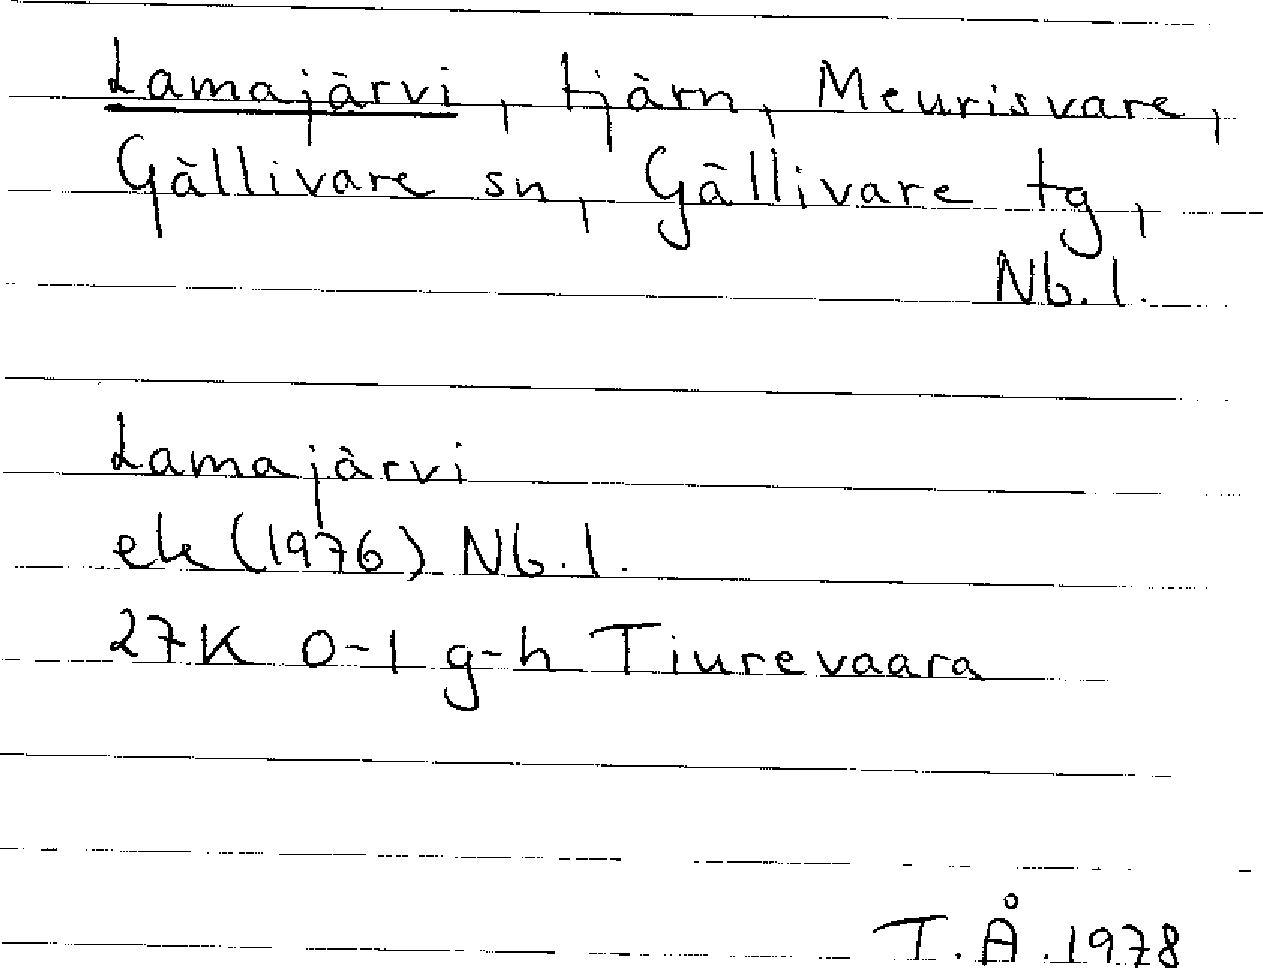 Lamajärvi, tjärn, Meurisvare,
Gällivare sn, Gällivare tg,
Nb. l.
Lamajärvi
ek (1976) Nb. l.
27K 0-1 g-h Tiurevaara
T. Å. 1978